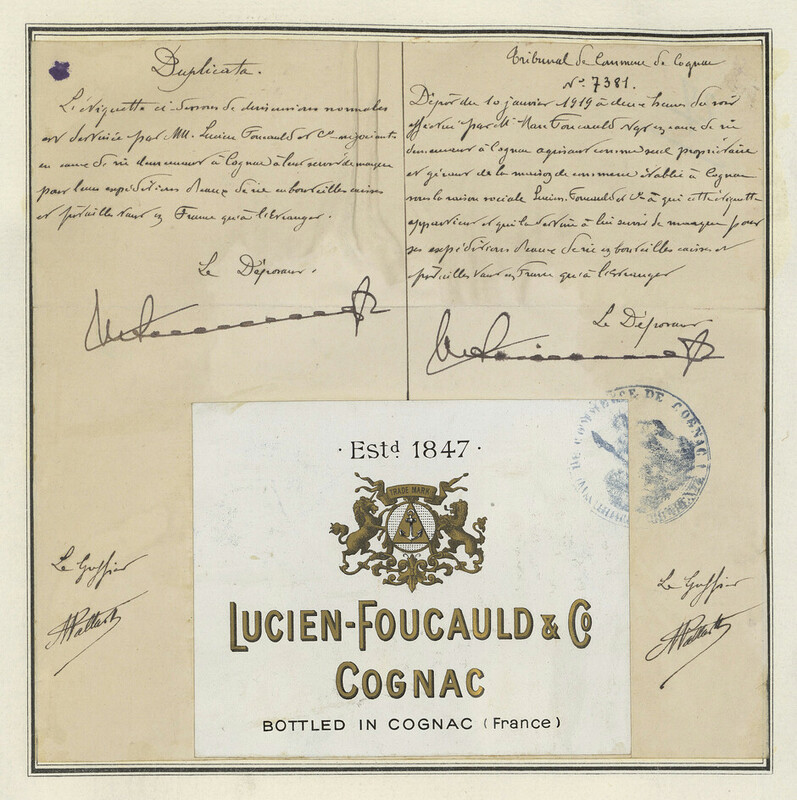 Duplicata.
L'étiquette ci dessous de dimensions normales
est destinée par MM. Lucien Foucauld et Cie négociants
en eaux de vie demeurant à Cognac à leur servir de marque
pour leurs expéditions d'eaux de vie en bouteilles caisses
et futailles tant en France qu'à l'étranger.
Le Déposant.
Tribunal de Commerce de Cognac
No. 7381.
Dépôt du 10 janvier 1919 à deux heures du soir
effectué par Mr Marc Foucauld Ngt en eaux de vie
demeurant à Cognac agissant comme seul propriétaire
et gérant de la maison de commerce établie à Cognac
sous la raison sociale Lucien Foucauld et Cie à qui cette étiquette
appartient et qui la destine à lui servir de marque pour
ses expéditions d'eaux de vie en bouteilles caisses et
futailles tant en France qu'à l'étranger
Le Déposant
· Estd 1847 ·
TRADE MARK
LUCIEN-FOUCAULD & Co
COGNAC
BOTTLED IN COGNAC (France)
DE COMMERCE DE COGNAC
Le Greffier
Le Greffier